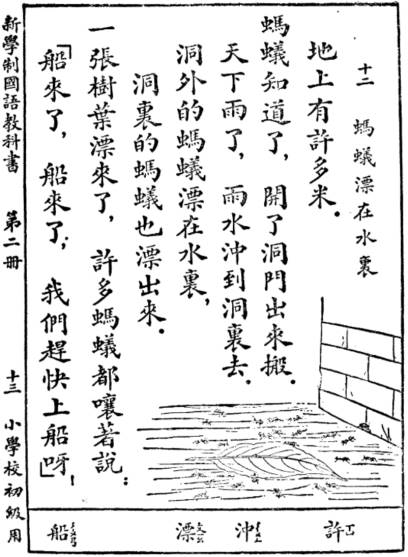 十二　螞蟻漂在水裏
地上有許多米．
螞蟻知道了，開了洞門出來搬．
天下雨了，雨水沖到洞裏去．
洞外的螞蟻漂在水裏，
洞裏的螞蟻也漂出來．
一張樹葉漂來了，許多螞蟻都嚷著說：
「船來了，船來了，我們趕快上船呀！」
許　沖　漂　船
新學制國語教科書　第二冊　十三　小學校初級用